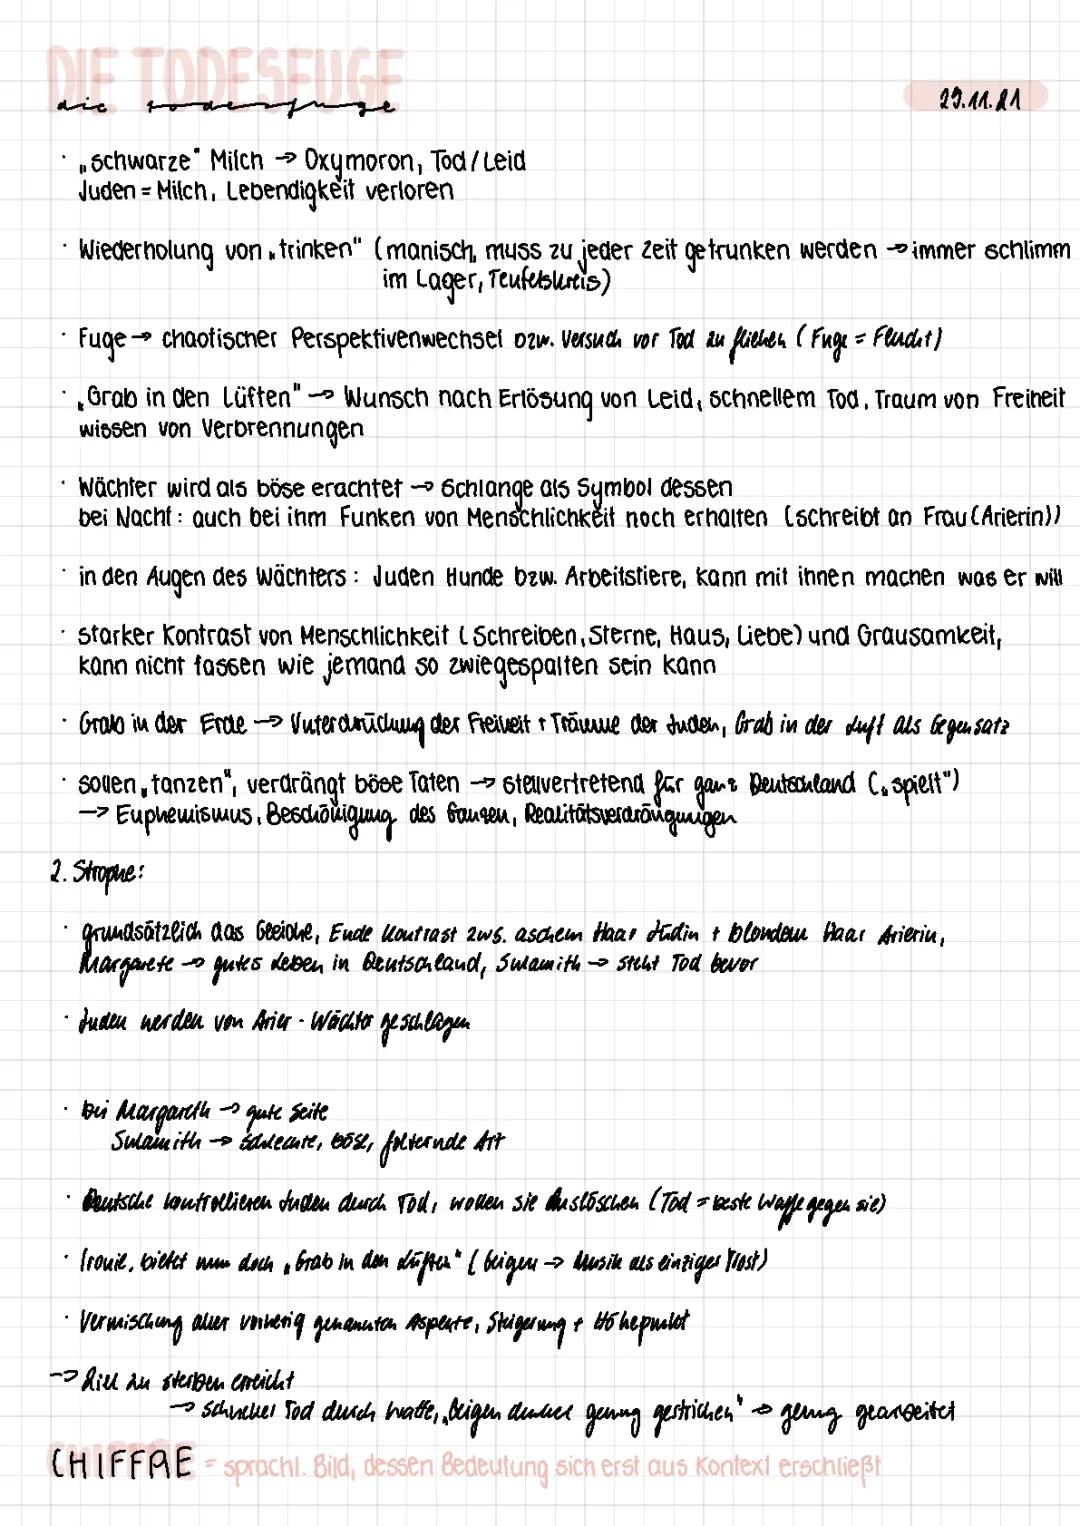 DIE TODESFUGE
die todesfuge
29.11.21
· „schwarze“ Milch → Oxymoron, Tod/Leid
Juden = Milch, Lebendigkeit verloren
· Wiederholung von „trinken" (manisch, muss zu jeder Zeit getrunken werden → immer schlimm
im Lager, Teufelskreis)
· Fuge → chaotischer Perspektivenwechsel bzw. Versuch vor Tod zu fliehen (Fuge = Flucht)
· „Grab in den Lüften" → Wunsch nach Erlösung von Leid, schnellem Tod, Traum von Freiheit
wissen von Verbrennungen
· Wächter wird als böse erachtet → Schlange als Symbol dessen
bei Nacht: auch bei ihm Funken von Menschlichkeit noch erhalten (schreibt an Frau (Arierin))
· in den Augen des Wächters: Juden Hunde bzw. Arbeitstiere, kann mit ihnen machen was er will
· starker Kontrast von Menschlichkeit (Schreiben, Sterne, Haus, Liebe) und Grausamkeit,
kann nicht fassen wie jemand so zwiegespalten sein kann
· Grab in der Erde → Unterdrückung der Freiheit + Träume der Juden, Grab in der Luft als Gegensatz
· sollen „tanzen", verdrängt böse Taten → stellvertretend für ganz Deutschland („spielt")
→ Euphemismus, Beschönigung des Ganzen, Realitätsverdrängungen
2. Strophe:
· grundsätzlich das Gleiche, Ende Kontrast zws. aschem Haar Jüdin + blondem Haar Arierin,
Margarete → gutes Leben in Deutschland, Sulamith → steht Tod bevor
· Juden werden von Arier-Wächter geschlagen
· bei Margareth → gute Seite
Sulamith → schlechte, böse, folternde Art
· Deutsche kontrollieren Juden durch Tod, wollen sie Auslöschen (Tod = beste Waffe gegen sie)
· Ironie, bietet nun doch „Grab in den Lüften“ (Geigen → Musik als einziger Trost)
· Vermischung aller vorherig genannten Aspekte, Steigerung + Höhepunkt
→ Ziel zu sterben erreicht
→ schneller Tod durch Waffe, „Geigen dunkel genug gestrichen" → genug gearbeitet
CHIFFRE = sprachl. Bild, dessen Bedeutung sich erst aus Kontext erschließt